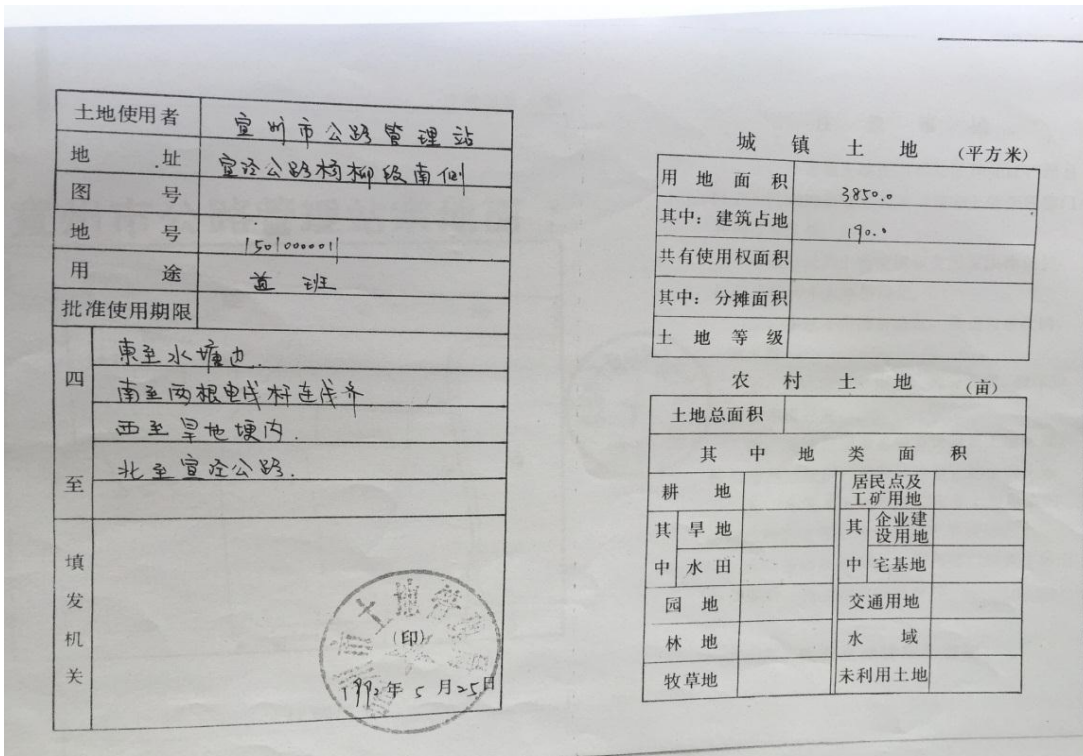 土地使用者 宣州市公路管理站
地址 宣泾公路杨柳段南侧
图号
地号 1501000011
用途 道班
批准使用期限
四至
東至水塘边.
南至两根电线杆连线齐
西至旱地埂内.
北至宣泾公路.
填发机关
(印)
1992年5月25日
城镇土地 (平方米)
用地面积 3850.0
其中：建筑占地 190.0
共有使用权面积
其中：分摊面积
土地等级
农村土地 (亩)
土地总面积
其中地类面积
耕地 居民点及工矿用地
其中 旱地 其中 企业建设用地
水田 宅基地
园地 交通用地
林地 水域
牧草地 未利用土地